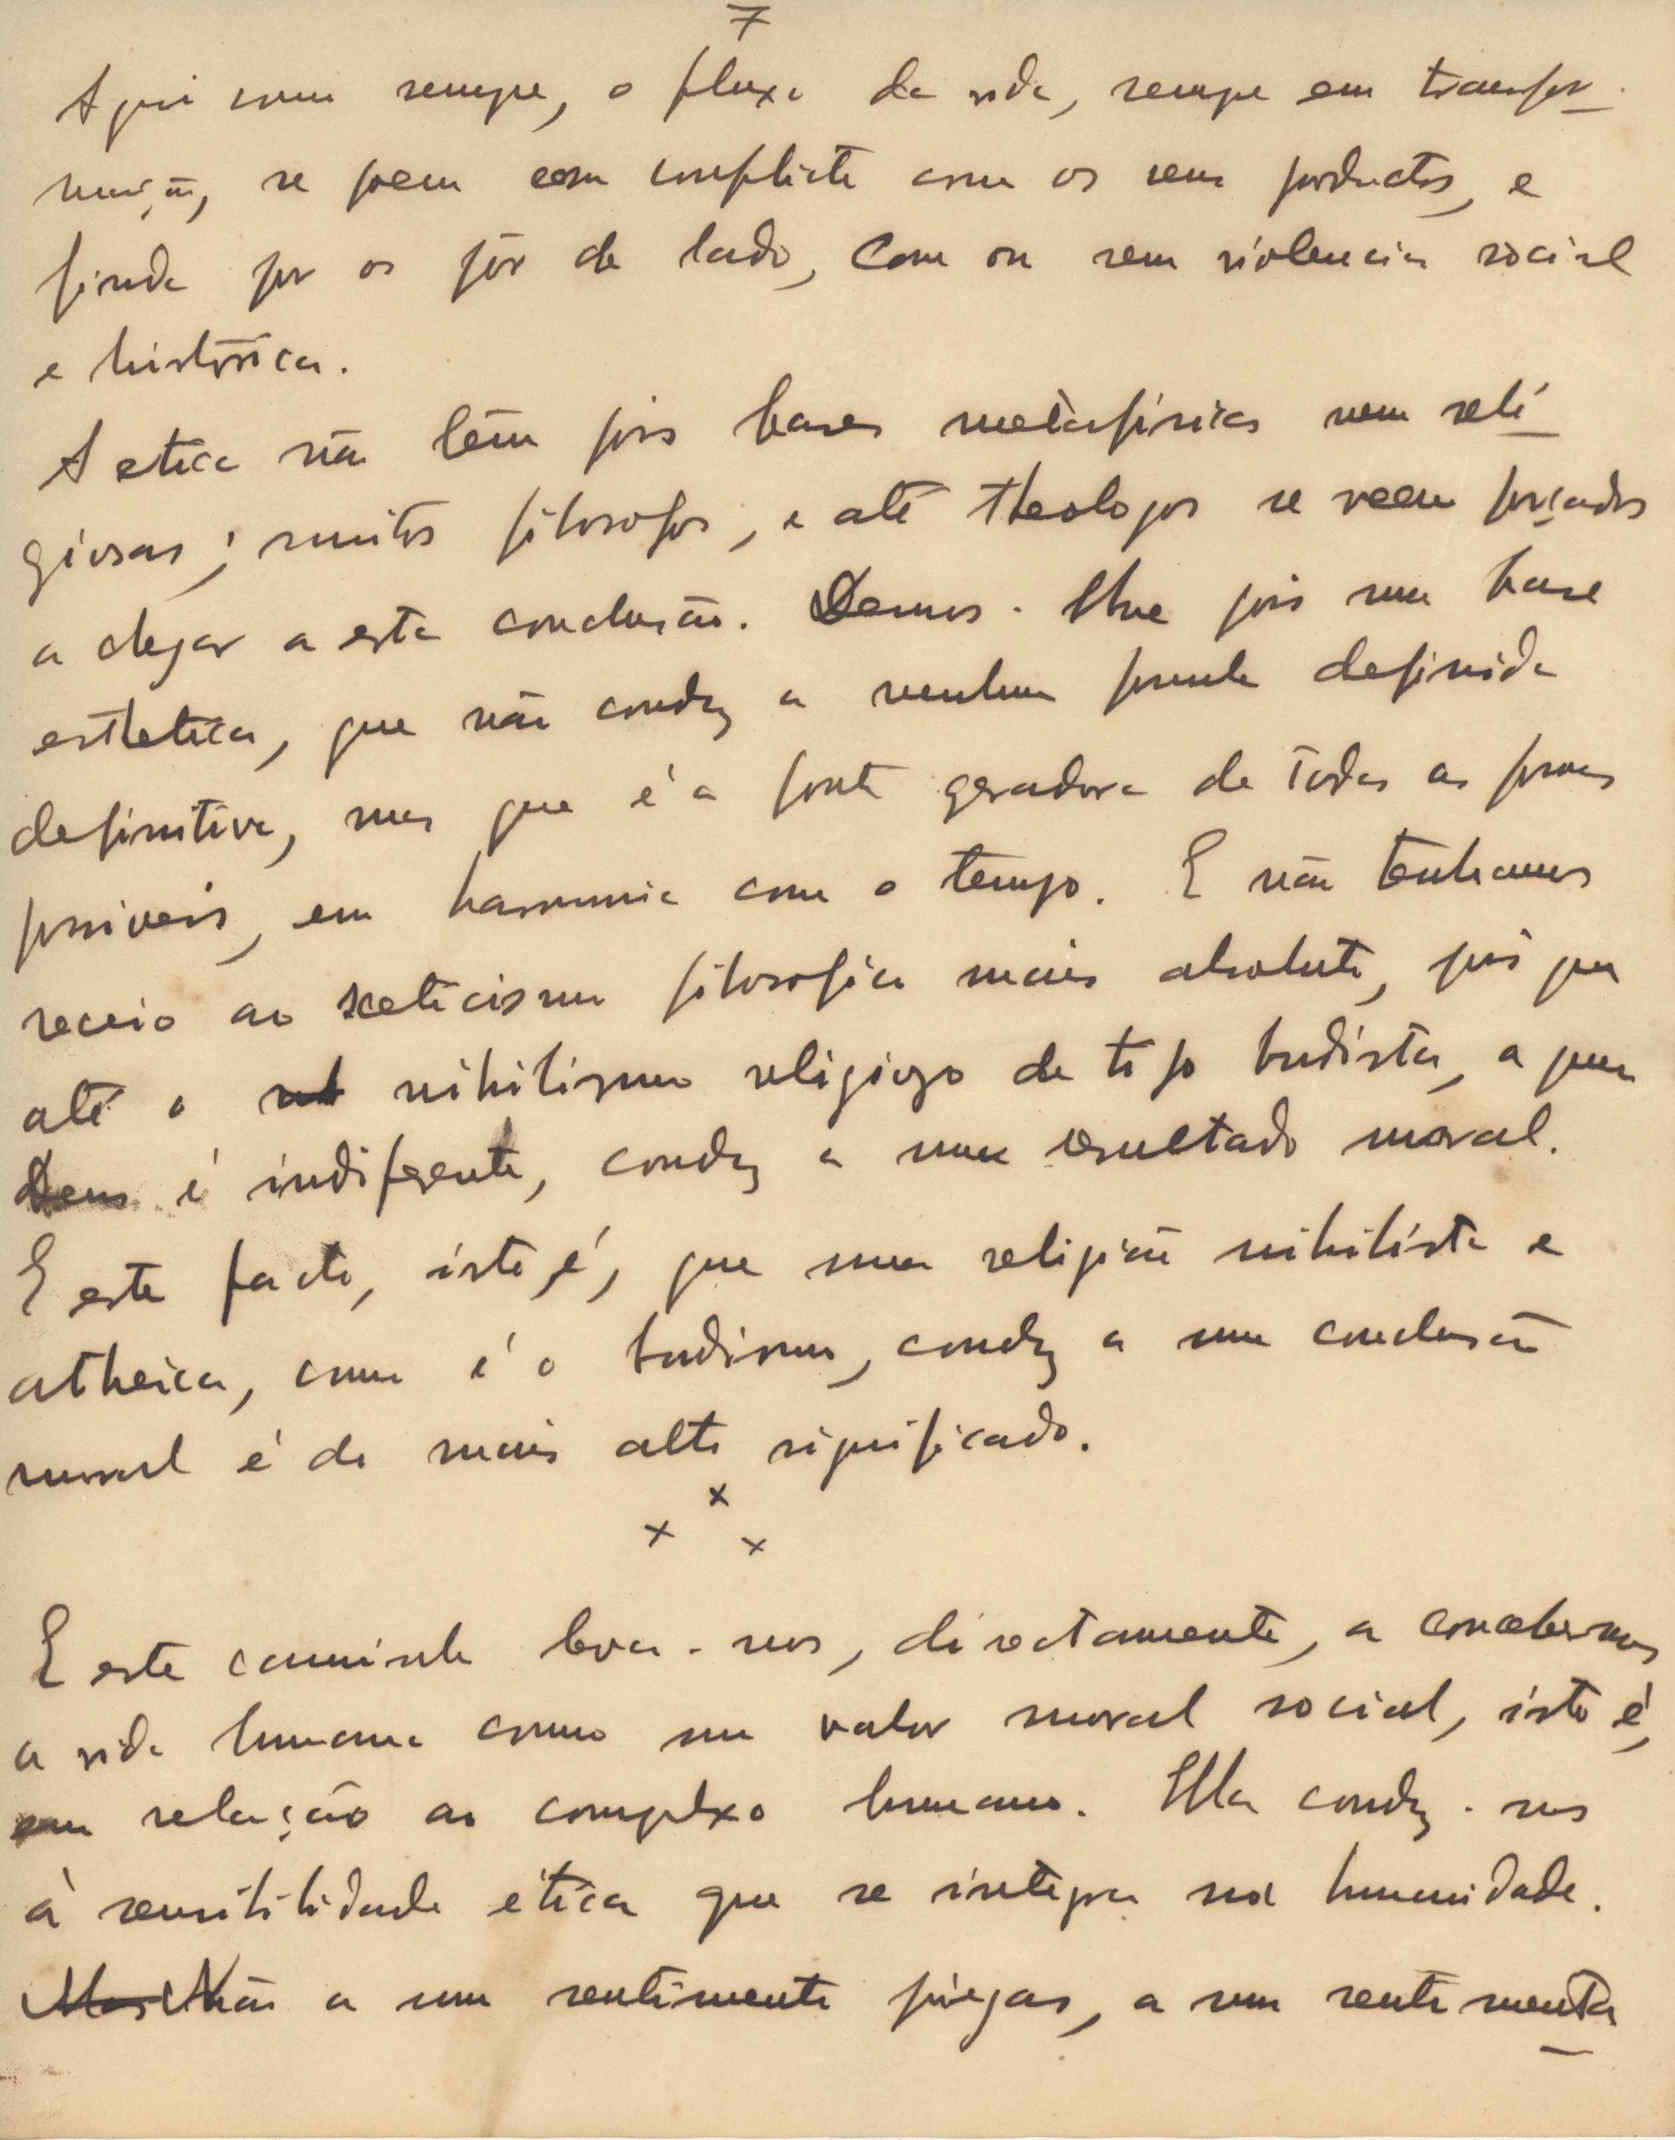 7
Aqui como sempre, o fluxo da vida, sempre em transfor-
mação, se poem em conflicto com os seus productos, e
finda por os pôr de lado, com ou sem violencia social
e histórica.
A etica não têm pois bases metàfisicas nem reli-
giosas; muitos filosofos, e até theologos se veem forçados
a chegar a esta conclusão. Demos-lhe pois uma base
esthetica, que não conduz a nenhuma formula definida
definitiva, mas que é a fonte geradora de todas as formas
possiveis, em harmonia com o tempo. E não tenhamos
receio ao sceticismo filosofico mais absoluto, pois que
até o nihilismo religiozo de tipo budista, a quem
Deus é indiferente, conduz a um resultado moral.
E este facto, isto é, que uma religião nihilista e
atheica, como é o budismo, conduz a uma conclusão
moral é do mais alto significado.
x
x x
E este caminho leva-nos, directamente, a concebermos
a vida humana como um valor moral social, isto é,
em relação ao complexo humano. Ella conduz-nos
à sensibilidade ética que se integra na humanidade.
Mas Não a um sentimento piegas, a um sentimenta-